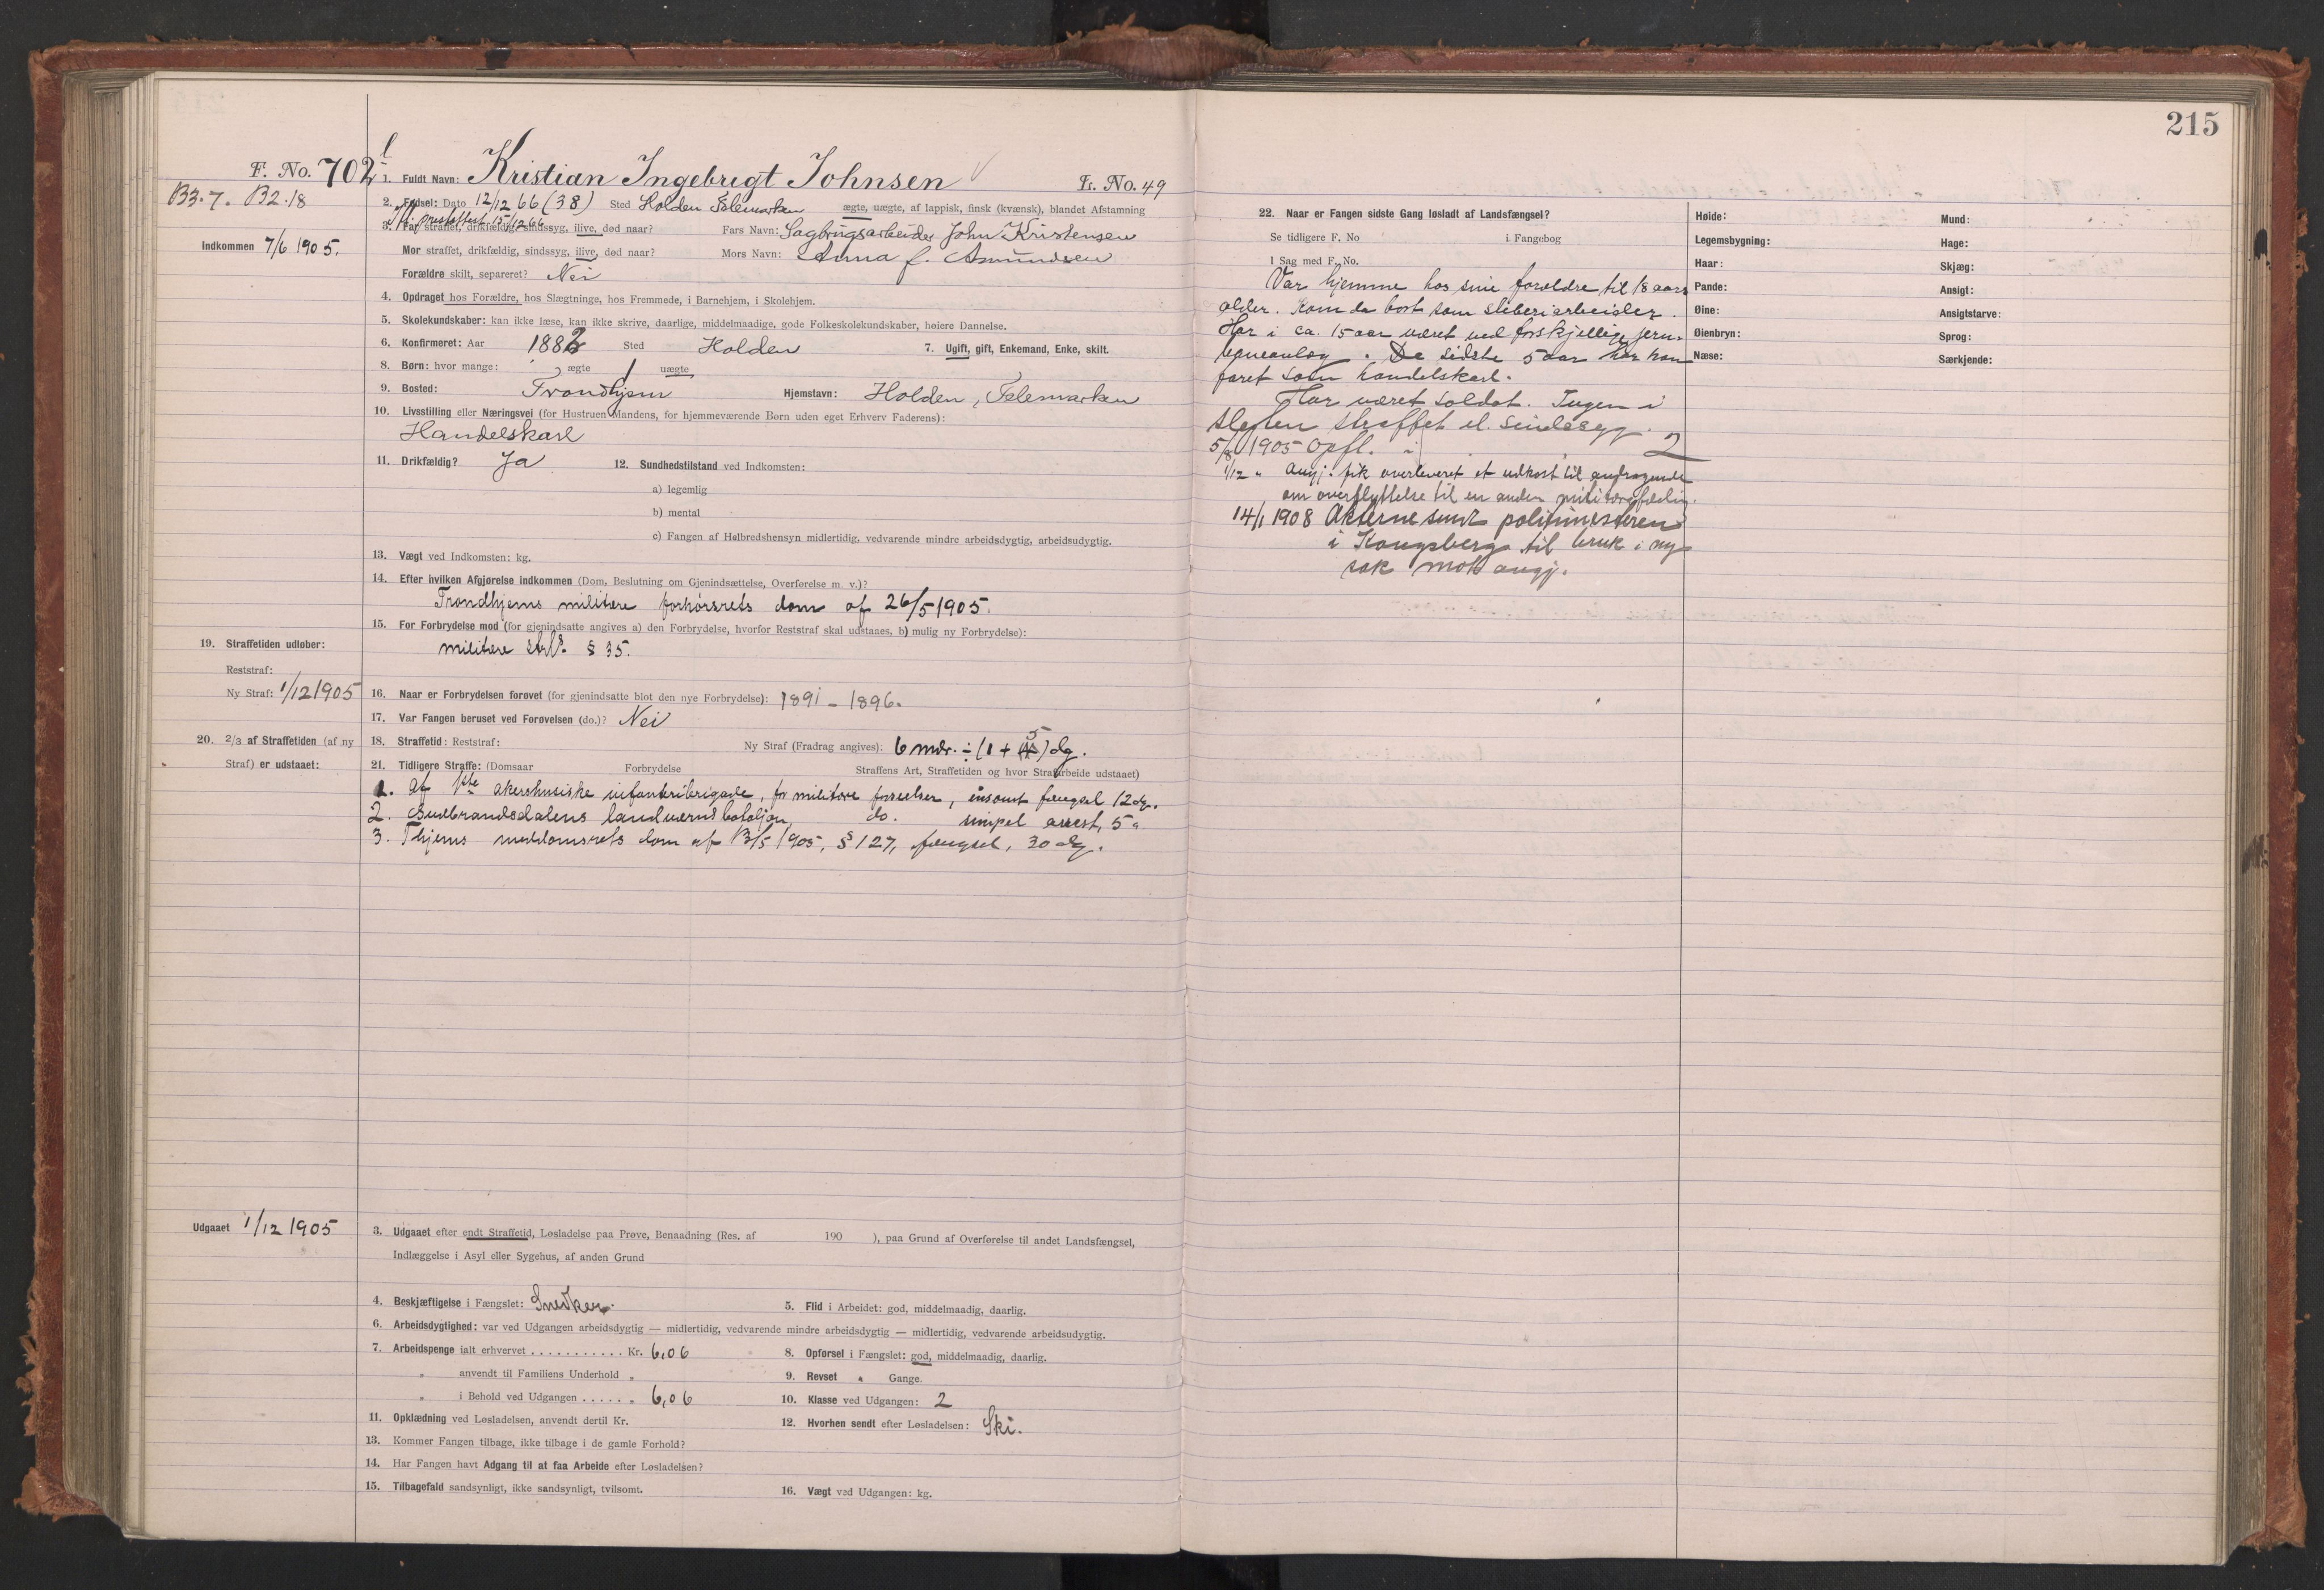 215
F. No. 702
1. Fuldt Navn: Kristian Ingebrigt Johnsen
Fr. No. 49
B3.7. B2.18
2. Fødsel: Dato 12/12 66 (38) Sted Holden Telemarken ægte, uægte, af lappisk, finsk (kvænsk), blandet Afstamning
prestattest 15/12 66
Indkommen 7/6 1905.
3. Far straffet, drikfældig, sindssyg, ilive, død naar? Fars Navn: Sagbrugsarbeider John Kristensen
Mor straffet, drikfældig, sindssyg, ilive, død naar? Mors Navn: Anna f. Asmundsen
Forældre skilt, separeret? Nei
4. Opdraget hos Forældre, hos Slægtninge, hos Fremmede, i Barnehjem, i Skolehjem.
5. Skolekundskaber: kan ikke læse, kan ikke skrive, daarlige, middelmaadige, gode Folkeskolekundskaber, høiere Dannelse.
6. Konfirmeret: Aar 1882 Sted Holden 7. Ugift, gift, Enkemand, Enke, skilt.
8. Børn: hvor mange: ægte 1 uægte
9. Bosted: Trondhjem Hjemstavn: Holden, Telemarken
10. Livsstilling eller Næringsvei (for Hustruen Mandens, for hjemmeværende Børn uden eget Erhverv Faderens):
Handelskarl
11. Drikfældig? Ja 12. Sundhedstilstand ved Indkomsten:
a) legemlig
b) mental
c) Fangen af Helbredshensyn midlertidig, vedvarende mindre arbeidsdygtig, arbeidsudygtig.
13. Vægt ved Indkomsten: kg.
14. Efter hvilken Afgjørelse indkommen (Dom, Beslutning om Gjenindsættelse, Overførelse m. v.)?
Trondhjems militære forhørsrets dom af 26/5 1905.
15. For Forbrydelse mod (for gjenindsatte angives a) den Forbrydelse, hvorfor Reststraf skal udstaaes, b) mulig ny Forbrydelse):
militære strl. § 35.
19. Straffetiden udløber:
Reststraf:
Ny Straf: 1/12 1905
16. Naar er Forbrydelsen forøvet (for gjenindsatte blot den nye Forbrydelse): 1891 - 1896.
17. Var Fangen beruset ved Forøvelsen (do.)? Nei
20. 2/3 af Straffetiden (af ny
Straf) er udstaaet:
18. Straffetid: Reststraf: Ny Straf (Fradrag angives): 6 mdr. ÷ (1 + 5) dg.
21. Tidligere Straffe: (Domsaar Forbrydelse Straffens Art, Straffetiden og hvor Strafarbeide udstaaet)
1. Af 1ste akershusiske infanteribrigade, for militære forseelser, ensomt fængsel 12 dg.
2. Gudbrandsdalens landvernsbataljon, do. simpel arrest, 5 "
3. Thjems meddomsrets dom af 13/5 1905, § 127, fængsel, 30 dg.
Udgaaet 1/12 1905
3. Udgaaet efter endt Straffetid, Løsladelse paa Prøve, Benaadning (Res. af 190 ), paa Grund af Overførelse til andet Landsfængsel,
Indlæggelse i Asyl eller Sygehus, af anden Grund
4. Beskjæftigelse i Fængslet: Snedker. 5. Flid i Arbeidet: god, middelmaadig, daarlig.
6. Arbeidsdygtighed: var ved Udgangen arbeidsdygtig — midlertidig, vedvarende mindre arbeidsdygtig — midlertidig, vedvarende arbeidsudygtig.
7. Arbeidspenge ialt erhvervet ........... Kr. 6,06 8. Opførsel i Fængslet: god, middelmaadig, daarlig.
" anvendt til Familiens Underhold " 9. Revset " Gange.
" i Behold ved Udgangen ..... " 6,06 10. Klasse ved Udgangen: 2
11. Opklædning ved Løsladelsen, anvendt dertil Kr. 12. Hvorhen sendt efter Løsladelsen: Ski.
13. Kommer Fangen tilbage, ikke tilbage i de gamle Forhold?
14. Har Fangen havt Adgang til at faa Arbeide efter Løsladelsen?
15. Tilbagefald sandsynligt, ikke sandsynligt, tvilsomt. 16. Vægt ved Udgangen: kg.
22. Naar er Fangen sidste Gang løsladt af Landsfængsel?
Se tidligere F. No i Fangebog
I Sag med F. No.
Var hjemme hos sine forældre til 18 aars
alder. Kom da bort som sliberiarbeider.
Har i ca. 15 aar været ved forskjellige jern-
baneanlæg. De sidste 5 aar har han
faret som handelskarl.
Har været soldat. Ingen i
slegten straffet el. sindssyg.
5/8 1905 Opfl. i 2
1/12 " Angj. fik overleveret et udkast til andragende
om overflyttelse til en anden militærafdeling.
14/1 1908 Akterne sendt politimesteren
i Kongsberg til bruk i ny
sak mot angj.
Høide:
Legemsbygning:
Haar:
Pande:
Øine:
Øienbryn:
Næse:
Mund:
Hage:
Skjæg:
Ansigt:
Ansigtsfarve:
Sprog:
Særkjende: